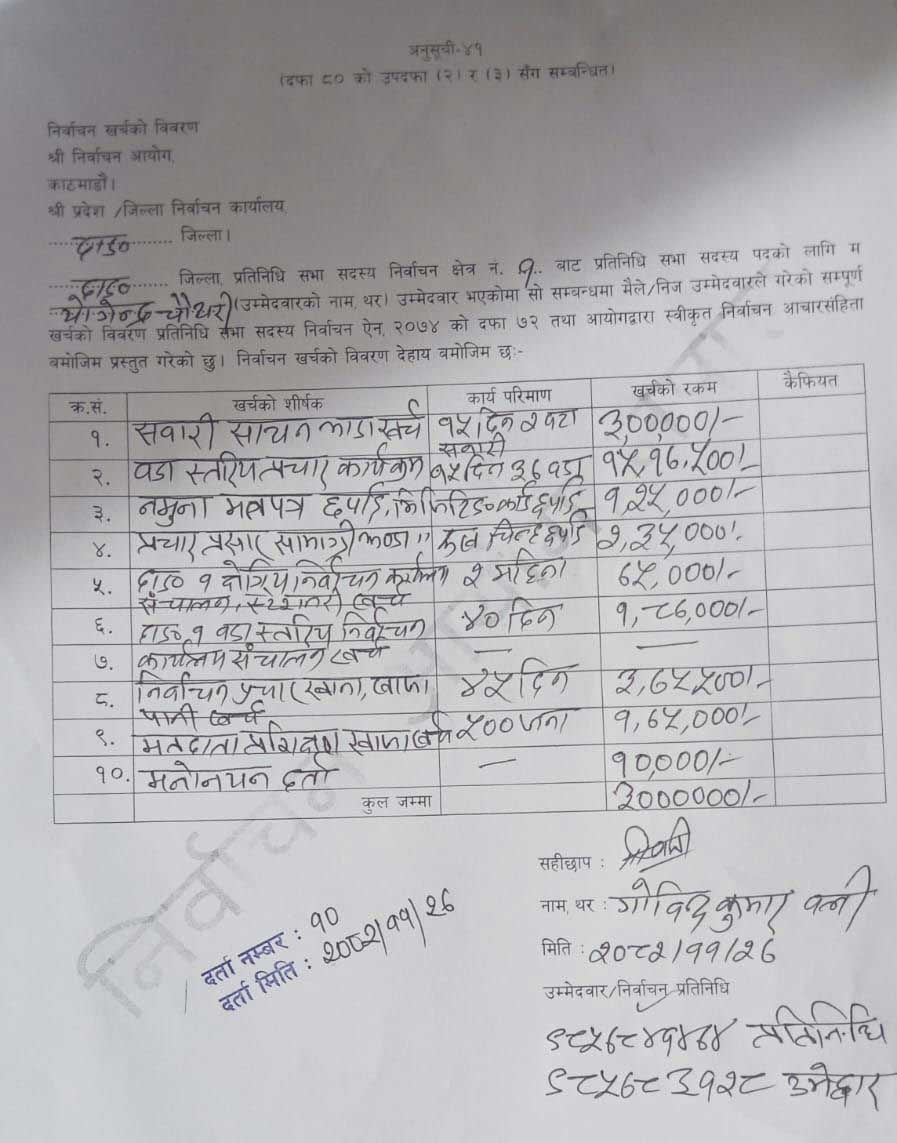 अनुसूची-४१
(दफा ८० को उपदफा (२) र (३) सँग सम्बन्धित)
निर्वाचन खर्चको विवरण
श्री निर्वाचन आयोग,
काठमाडौं।
श्री प्रदेश /जिल्ला निर्वाचन कार्यालय,
.....दाङ........ जिल्ला।
.....दाङ...... जिल्ला, प्रतिनिधि सभा सदस्य निर्वाचन क्षेत्र नं. १.. बाट प्रतिनिधि सभा सदस्य पदको लागि म
योगेन्द्र चौधरी (उम्मेदवारको नाम, थर) उम्मेदवार भएकोमा सो सम्बन्धमा मैले/निज उम्मेदवारले गरेको सम्पूर्ण
खर्चको विवरण प्रतिनिधि सभा सदस्य निर्वाचन ऐन, २०७४ को दफा ७२ तथा आयोगद्वारा स्वीकृत निर्वाचन आचारसंहिता
बमोजिम प्रस्तुत गरेको छु। निर्वाचन खर्चको विवरण देहाय बमोजिम छः-
क्र.सं. खर्चको शीर्षक कार्य परिमाण खर्चको रकम कैफियत
१. सवारी साधन भाडा खर्च १५ दिन २ वटा सवारी ३,०००००/-
२. वडा स्तरिय प्रचार कार्यक्रम १५ दिन ३६ वडा
३. नमुना मतपत्र छपाई, कार्ड छपाई १,२५,०००/-
४. प्रचार प्रसार सामाग्री झण्डा " चिन्ह छपाई २,३५,०००/-
५. दाङ १ क्षेत्रिय निर्वाचन कार्यालय २ महिना ६५,०००/-
संचालन, स्टेशनरी खर्च
६. दाङ १ वडा स्तरिय निर्वाचन ४० दिन १,८६,०००/-
७. कार्यालय संचालन खर्च — —
८. निर्वाचन प्रचार खाना, खाजा ४५ दिन ३,६५५००/-
पानी खर्च
९. मतदाता प्रशिक्षण खाजा खर्च ५०० जना १,६५,०००/-
१०. मनोनयन दर्ता — १०,०००/-
कुल जम्मा
सहीछाप :
नाम, थर : गोविन्द्र कुमार
मिति : २०८२/११/२६
उम्मेदवार/निर्वाचन प्रतिनिधि
९८५८४५४६४ प्रतिनिधि
९८५८३१२८ उमेद्वार
दर्ता नम्बर : १०
दर्ता मिति : २०८२/११/२६
निर्वाचन आयोग